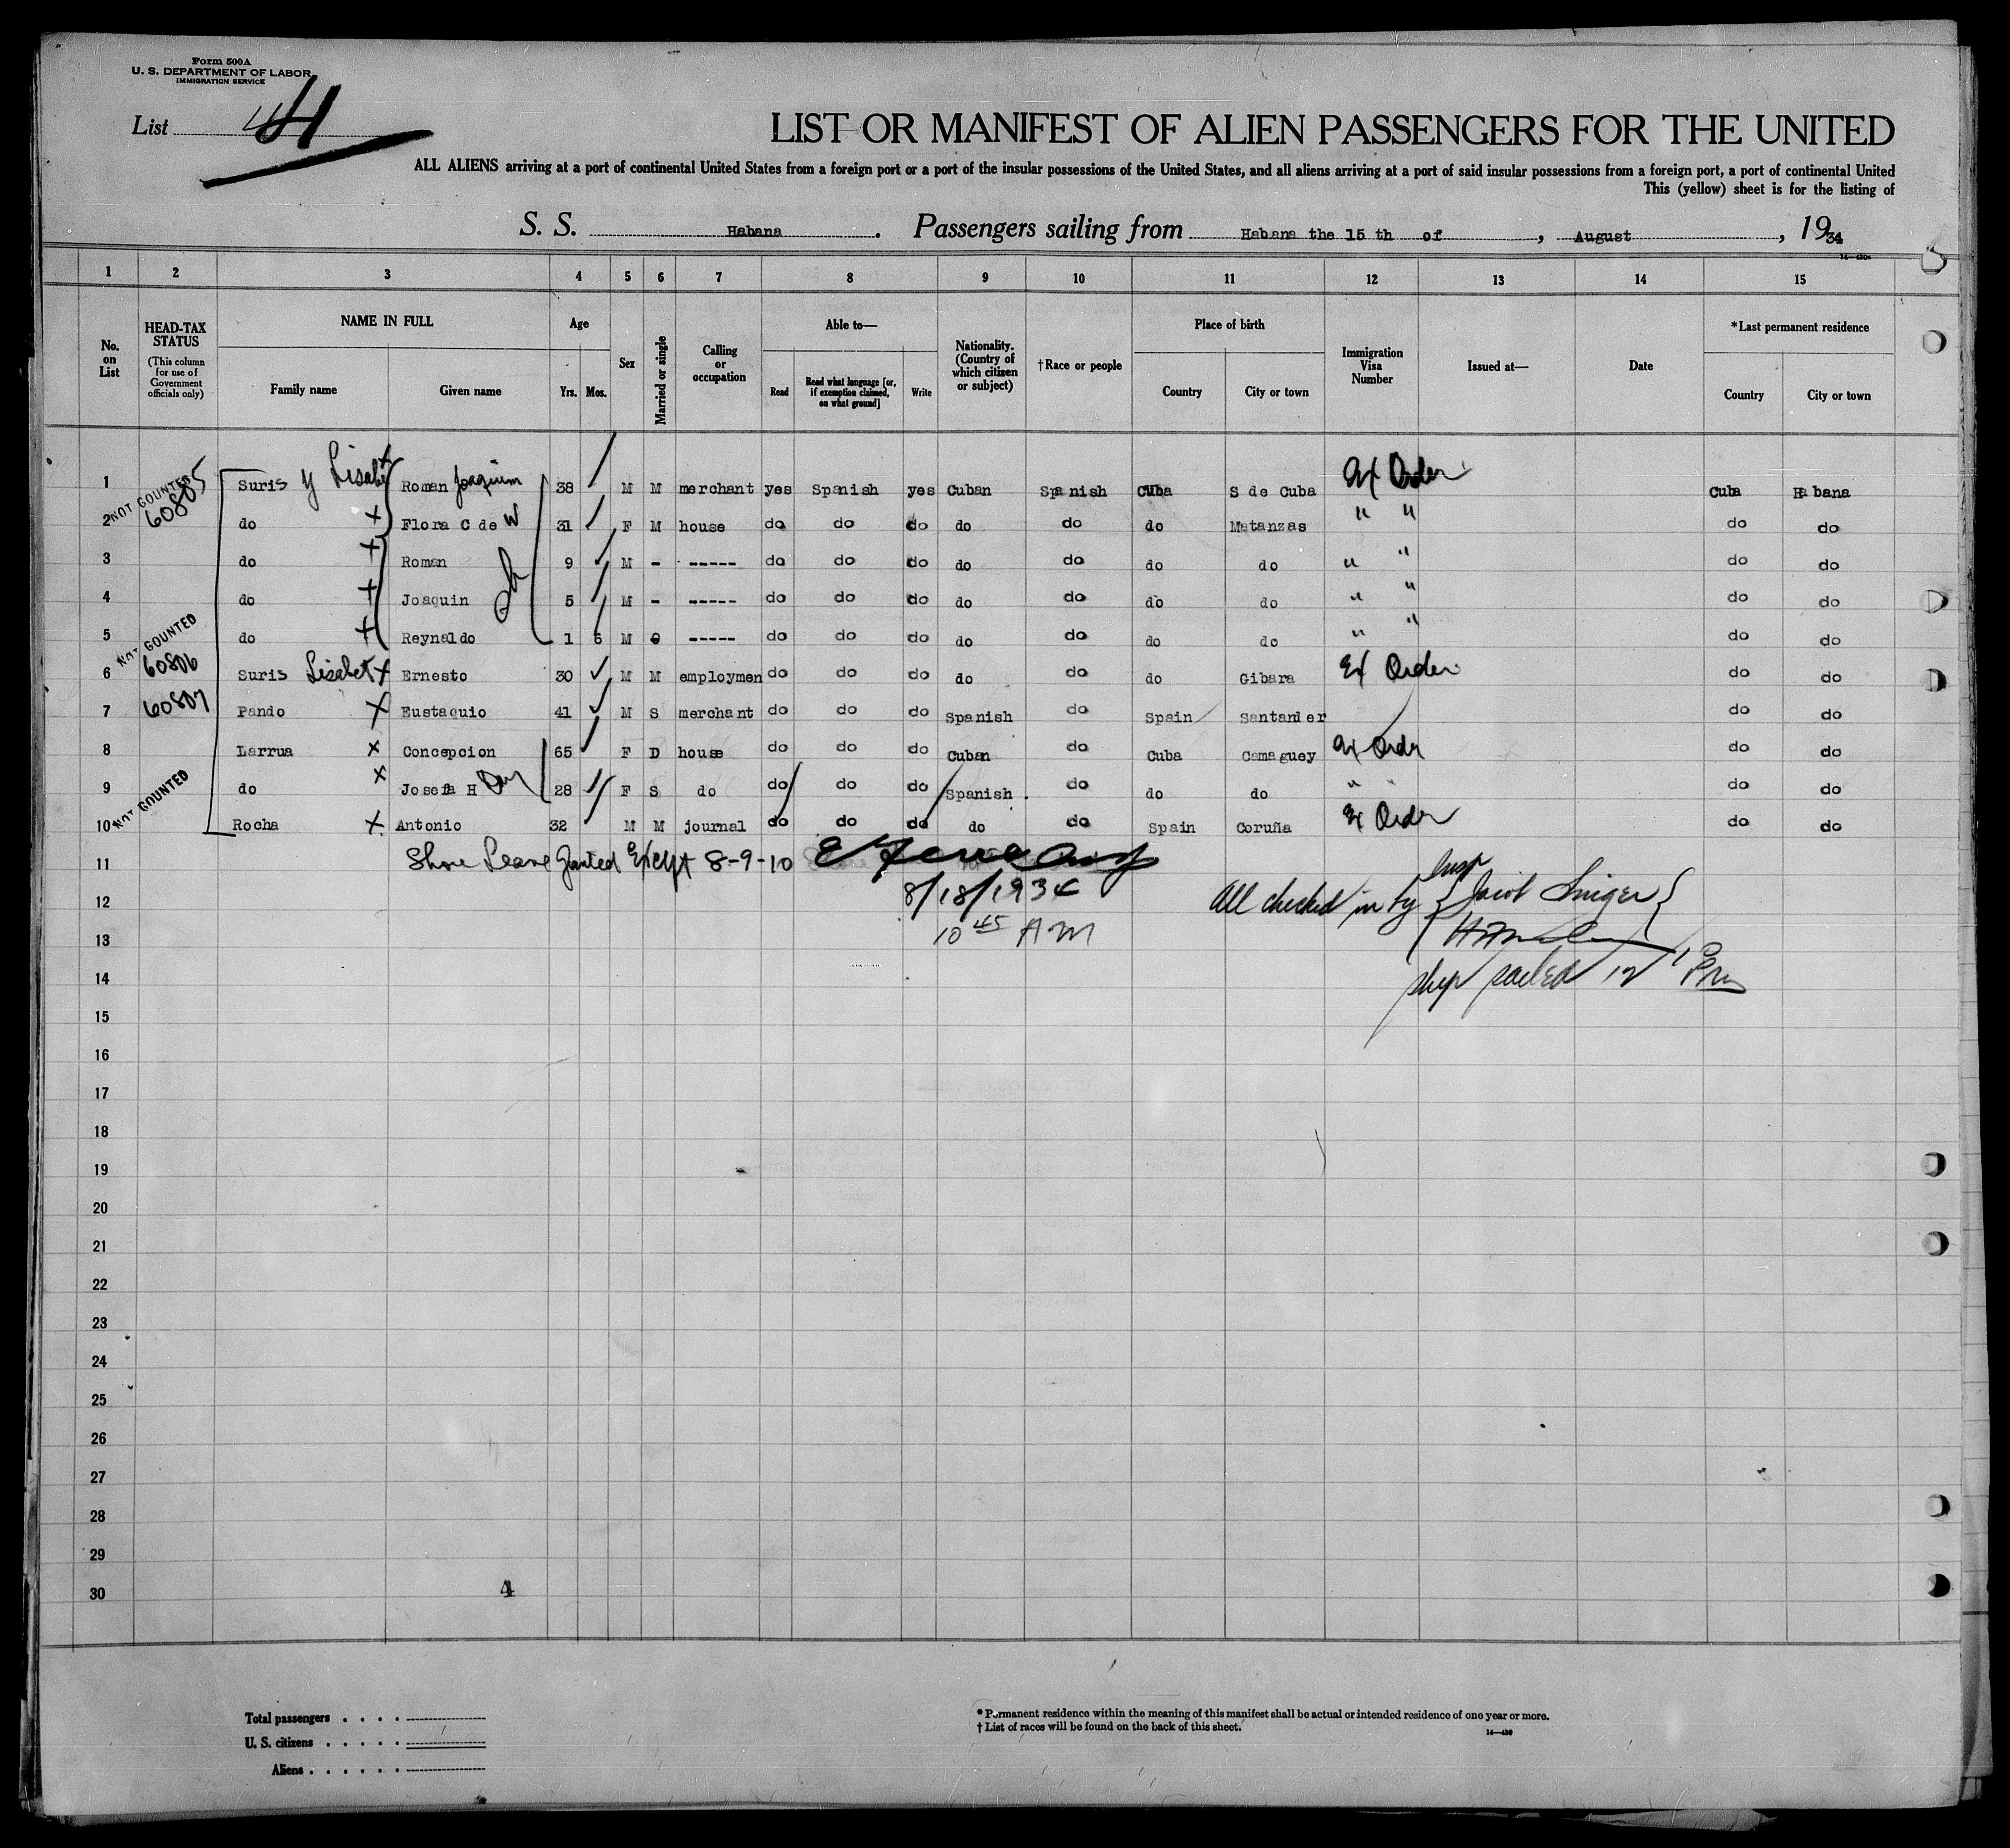 Form 500A
U. S. DEPARTMENT OF LABOR
IMMIGRATION SERVICE
List 4
LIST OR MANIFEST OF ALIEN PASSENGERS FOR THE UNITED
ALL ALIENS arriving at a port of continental United States from a foreign port or a port of the insular possessions of the United States, and all aliens arriving at a port of said insular possessions from a foreign port, a port of continental United
This (yellow) sheet is for the listing of
S. S. Habana. Passengers sailing from Habana the 15 th of, August, 1934
1 2 3 4 5 6 7 8 9 10 11 12 13 14 15
No. on List
HEAD-TAX STATUS (This column for use of Government officials only)
NAME IN FULL Family name Given name
Age Yrs. Mos.
Sex
Married or single
Calling or occupation
Able to— Read Read what language [or, if exemption claimed, on what ground] Write
Nationality. (Country of which citizen or subject)
†Race or people
Place of birth Country City or town
Immigration Visa Number
Issued at—
Date
*Last permanent residence Country City or town
1 NOT COUNTED 60805 Suris y Lisabet Roman Joaquim 38 M M merchant yes Spanish yes Cuban Spanish Cuba S de Cuba Ex Order Cuba Habana
2 do x Flora C de W 31 F M house do do do do do do Matanzas " " do do
3 do x Roman 9 M - ----- do do do do do do do " " do do
4 do x Joaquin 5 M - ----- do do do do do do do " " do do
5 NOT COUNTED do x Reynaldo 1 6 M ----- do do do do do do do " " do do
6 60806 Suris Lisabet x Ernesto 30 M M employmen do do do do do do Gibara Ex Order do do
7 60807 Pando x Eustaquio 41 M S merchant do do do Spanish do Spain Santander do do
8 Larrua x Concepcion 65 F D house do do do Cuban do Cuba Camaguey Ex Order do do
9 NOT COUNTED do x Josefa H 28 F S do do do do Spanish . do do do " " do do
10 Rocha x Antonio 32 M M journal do do do do do Spain Coruña Ex Order do do
11 Shore Leave Granted Except 8-9-10
12 8/18/1934 All checked in by Insp
13 10 45 AM
14 ship sailed 12 PM
15
16
17
18
19
20
21
22
23
24
25
26
27
28
29
30 4
Total passengers . . . .
U. S. citizens . . . . .
Aliens . . . . . .
* Permanent residence within the meaning of this manifest shall be actual or intended residence of one year or more.
† List of races will be found on the back of this sheet.